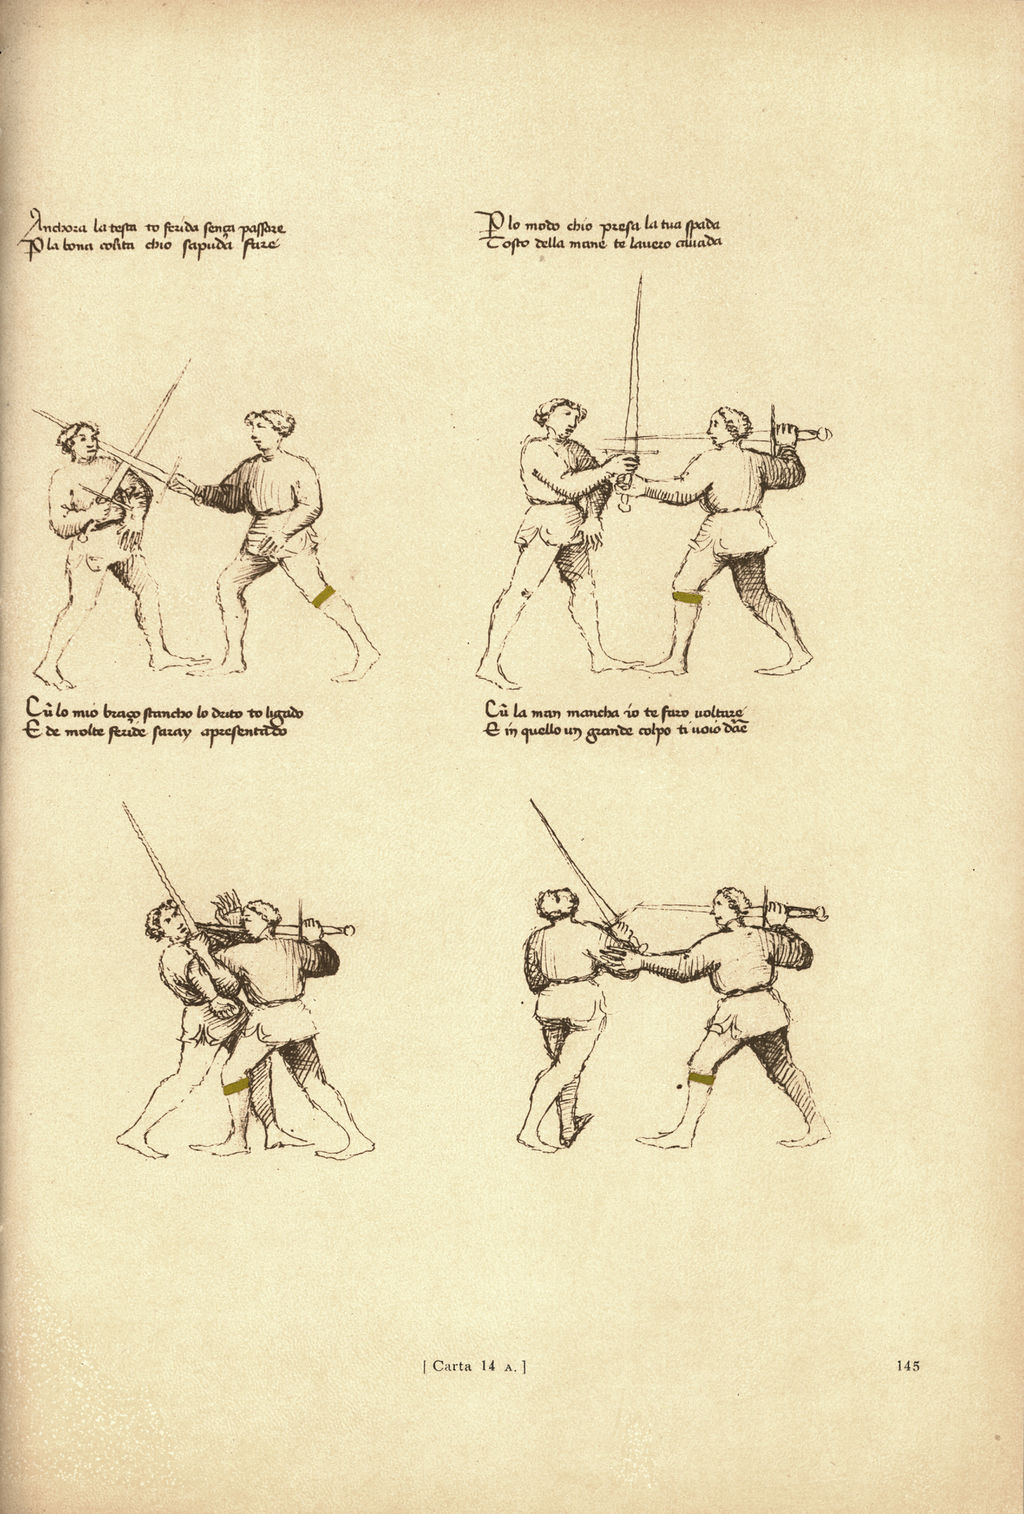 Anchora la testa to ferida sença passare
P la bona coẜita chio sapuda fare
P lo modo chio presa la tua spada
Tosto della mane te lauero cauada
Cū lo mio braço stancho lo drito to ligado
E de molte feride saray apresentado
Cū la man mancha io te faro voltare
E in quello un grande colpo ti voio dare
[ Carta 14 A. ]
145